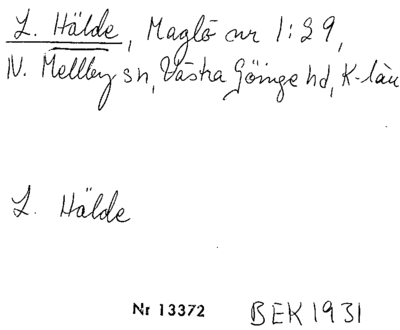 L. Hälde, Maglö nr 1:29,
N. Mellby sn, Västra Göinge hd, K-län
L. Hälde
Nr 13372 BEK 1931